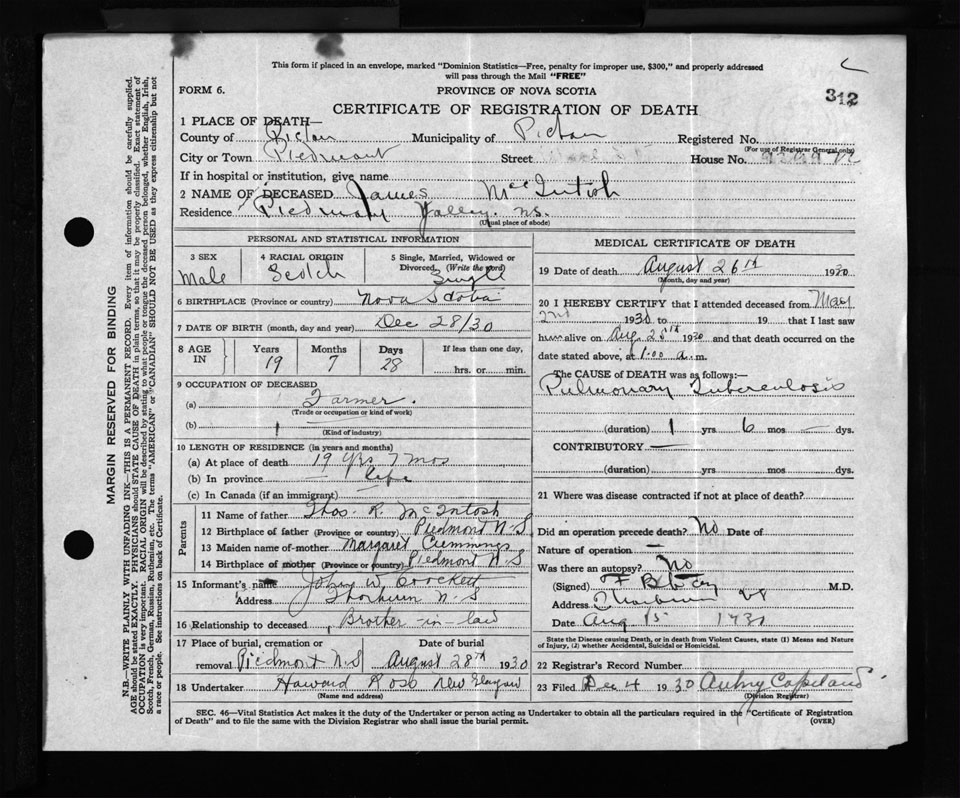 This form if placed in an envelope, marked "Dominion Statistics—Free, penalty for improper use, $300," and properly addressed
will pass through the Mail "FREE"
FORM 6. PROVINCE OF NOVA SCOTIA
312
CERTIFICATE OF REGISTRATION OF DEATH
1 PLACE OF DEATH—
County of Pictou Municipality of Pictou Registered No.
(For use of Registrar General only)
City or Town Piedmont Street House No.
If in hospital or institution, give name
2 NAME OF DECEASED James McIntosh
Residence Piedmont Valley. N.S.
(Usual place of abode)
PERSONAL AND STATISTICAL INFORMATION
3 SEX 4 RACIAL ORIGIN 5 Single, Married, Widowed or
Divorced (Write the word)
Male Scotch Single
6 BIRTHPLACE (Province or country) Nova Scotia
7 DATE OF BIRTH (month, day and year) Dec 28/30
8 AGE IN Years Months Days If less than one day,
19 7 28 hrs. or min.
9 OCCUPATION OF DECEASED
(a) Farmer.
(Trade or occupation or kind of work)
(b)
(Kind of industry)
10 LENGTH OF RESIDENCE (in years and months)
(a) At place of death 19 yrs 7 mos
(b) In province life
(c) In Canada (if an immigrant)
Parents
11 Name of father Thos. R. McIntosh
12 Birthplace of father (Province or country) Piedmont N.S
13 Maiden name of mother Margaret Cummings
14 Birthplace of mother (Province or country) Piedmont N.S
15 Informant's name John W Crockett
Address Thorburn N.S
16 Relationship to deceased Brother-in-law
17 Place of burial, cremation or Date of burial
removal Piedmont N.S August 28th 1930
18 Undertaker Howard Ross New Glasgow
(Name and address)
MEDICAL CERTIFICATE OF DEATH
19 Date of death August 26th 1930
(Month, day and year)
20 I HEREBY CERTIFY that I attended deceased from May
2nd 1930 to 19 that I last saw
him alive on Aug. 25th 1930 and that death occurred on the
date stated above, at 1.00 a.m.
The CAUSE OF DEATH was as follows:
Pulmonary Tuberculosis
(duration) 1 yrs 6 mos — dys.
CONTRIBUTORY —
(duration) yrs. mos. dys.
21 Where was disease contracted if not at place of death?
Did an operation precede death? No Date of
Nature of operation —
Was there an autopsy? No
(Signed) M.D.
Address Thorburn NS
Date Aug 15 1930
State the Disease causing Death, or in death from Violent Causes, state (1) Means and Nature
of Injury, (2) whether Accidental, Suicidal or Homicidal.
22 Registrar's Record Number
23 Filed Dec 4 1930 Aubry Copeland
(Division Registrar)
SEC. 46—Vital Statistics Act makes it the duty of the Undertaker or person acting as Undertaker to obtain all the particulars required in the "Certificate of Registration
of Death" and to file the same with the Division Registrar who shall issue the burial permit.
(OVER)
MARGIN RESERVED FOR BINDING
N.B.—WRITE PLAINLY WITH UNFADING INK—THIS IS A PERMANENT RECORD. Every item of information should be carefully supplied.
AGE should be stated EXACTLY. PHYSICIANS should STATE CAUSE OF DEATH in plain terms, so that it may be properly classified. Exact statement of
OCCUPATION is very important. RACIAL ORIGIN will be described by stating to what people or tongue the deceased person belonged, whether English, Irish,
Scotch, French, German, Russian, Ruthenian, etc. The terms "AMERICAN" or "CANADIAN" SHOULD NOT BE USED as they express citizenship but not
a race or people. See instructions on back of Certificate.